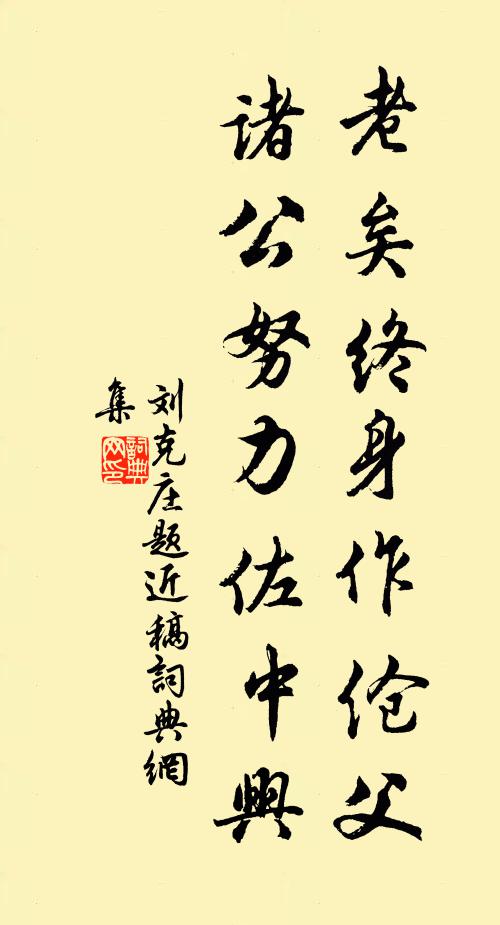 老矣终身作伧父
诸公努力佐中興
刘克庄题近稿詞典網
集
詞典网印